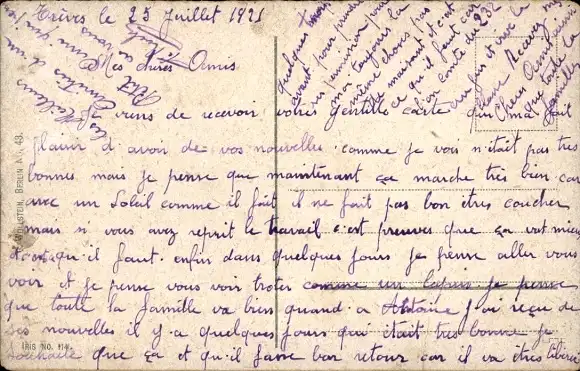 Trèves le 25 Juillet 1921
Mes chères Amis
Je viens de recevoir votres gentille carte qui m'a fait
plaisir d'avoir de vos nouvelles comme je vois n'était pas très
bonnes mais je pense que maintenant ça marche très bien car
avec un Soleil comme il fait il ne fait pas bon êtres coucher
mais si vous avez reprit le travail c'est preuves que ça vat mieux
et c'est qu'il faut. enfin dans quelques jours je pense aller vous
voir et je pense vous voir troter comme un lapin je pense
que toute la famille va bien quand a Antoine j'ai reçu de
ses nouvelles il y a quelques jours qui était très bonne je
souhaite que ça et qu'il fasse bon retour car il va êtres libérer
quelques
avant pour
permission pour
moi toujours la
même chose pas
et c'est
ce qu'il faut car
l'on conte du 232
au jus et vive la
Recevez mes
Chers Amis
que toute la
famille
les Meilleurs
Amitiés d'un
Ami qui
a vous
Petit
WOLLSTEIN, BERLIN N. 48.
IRIS No. 114.